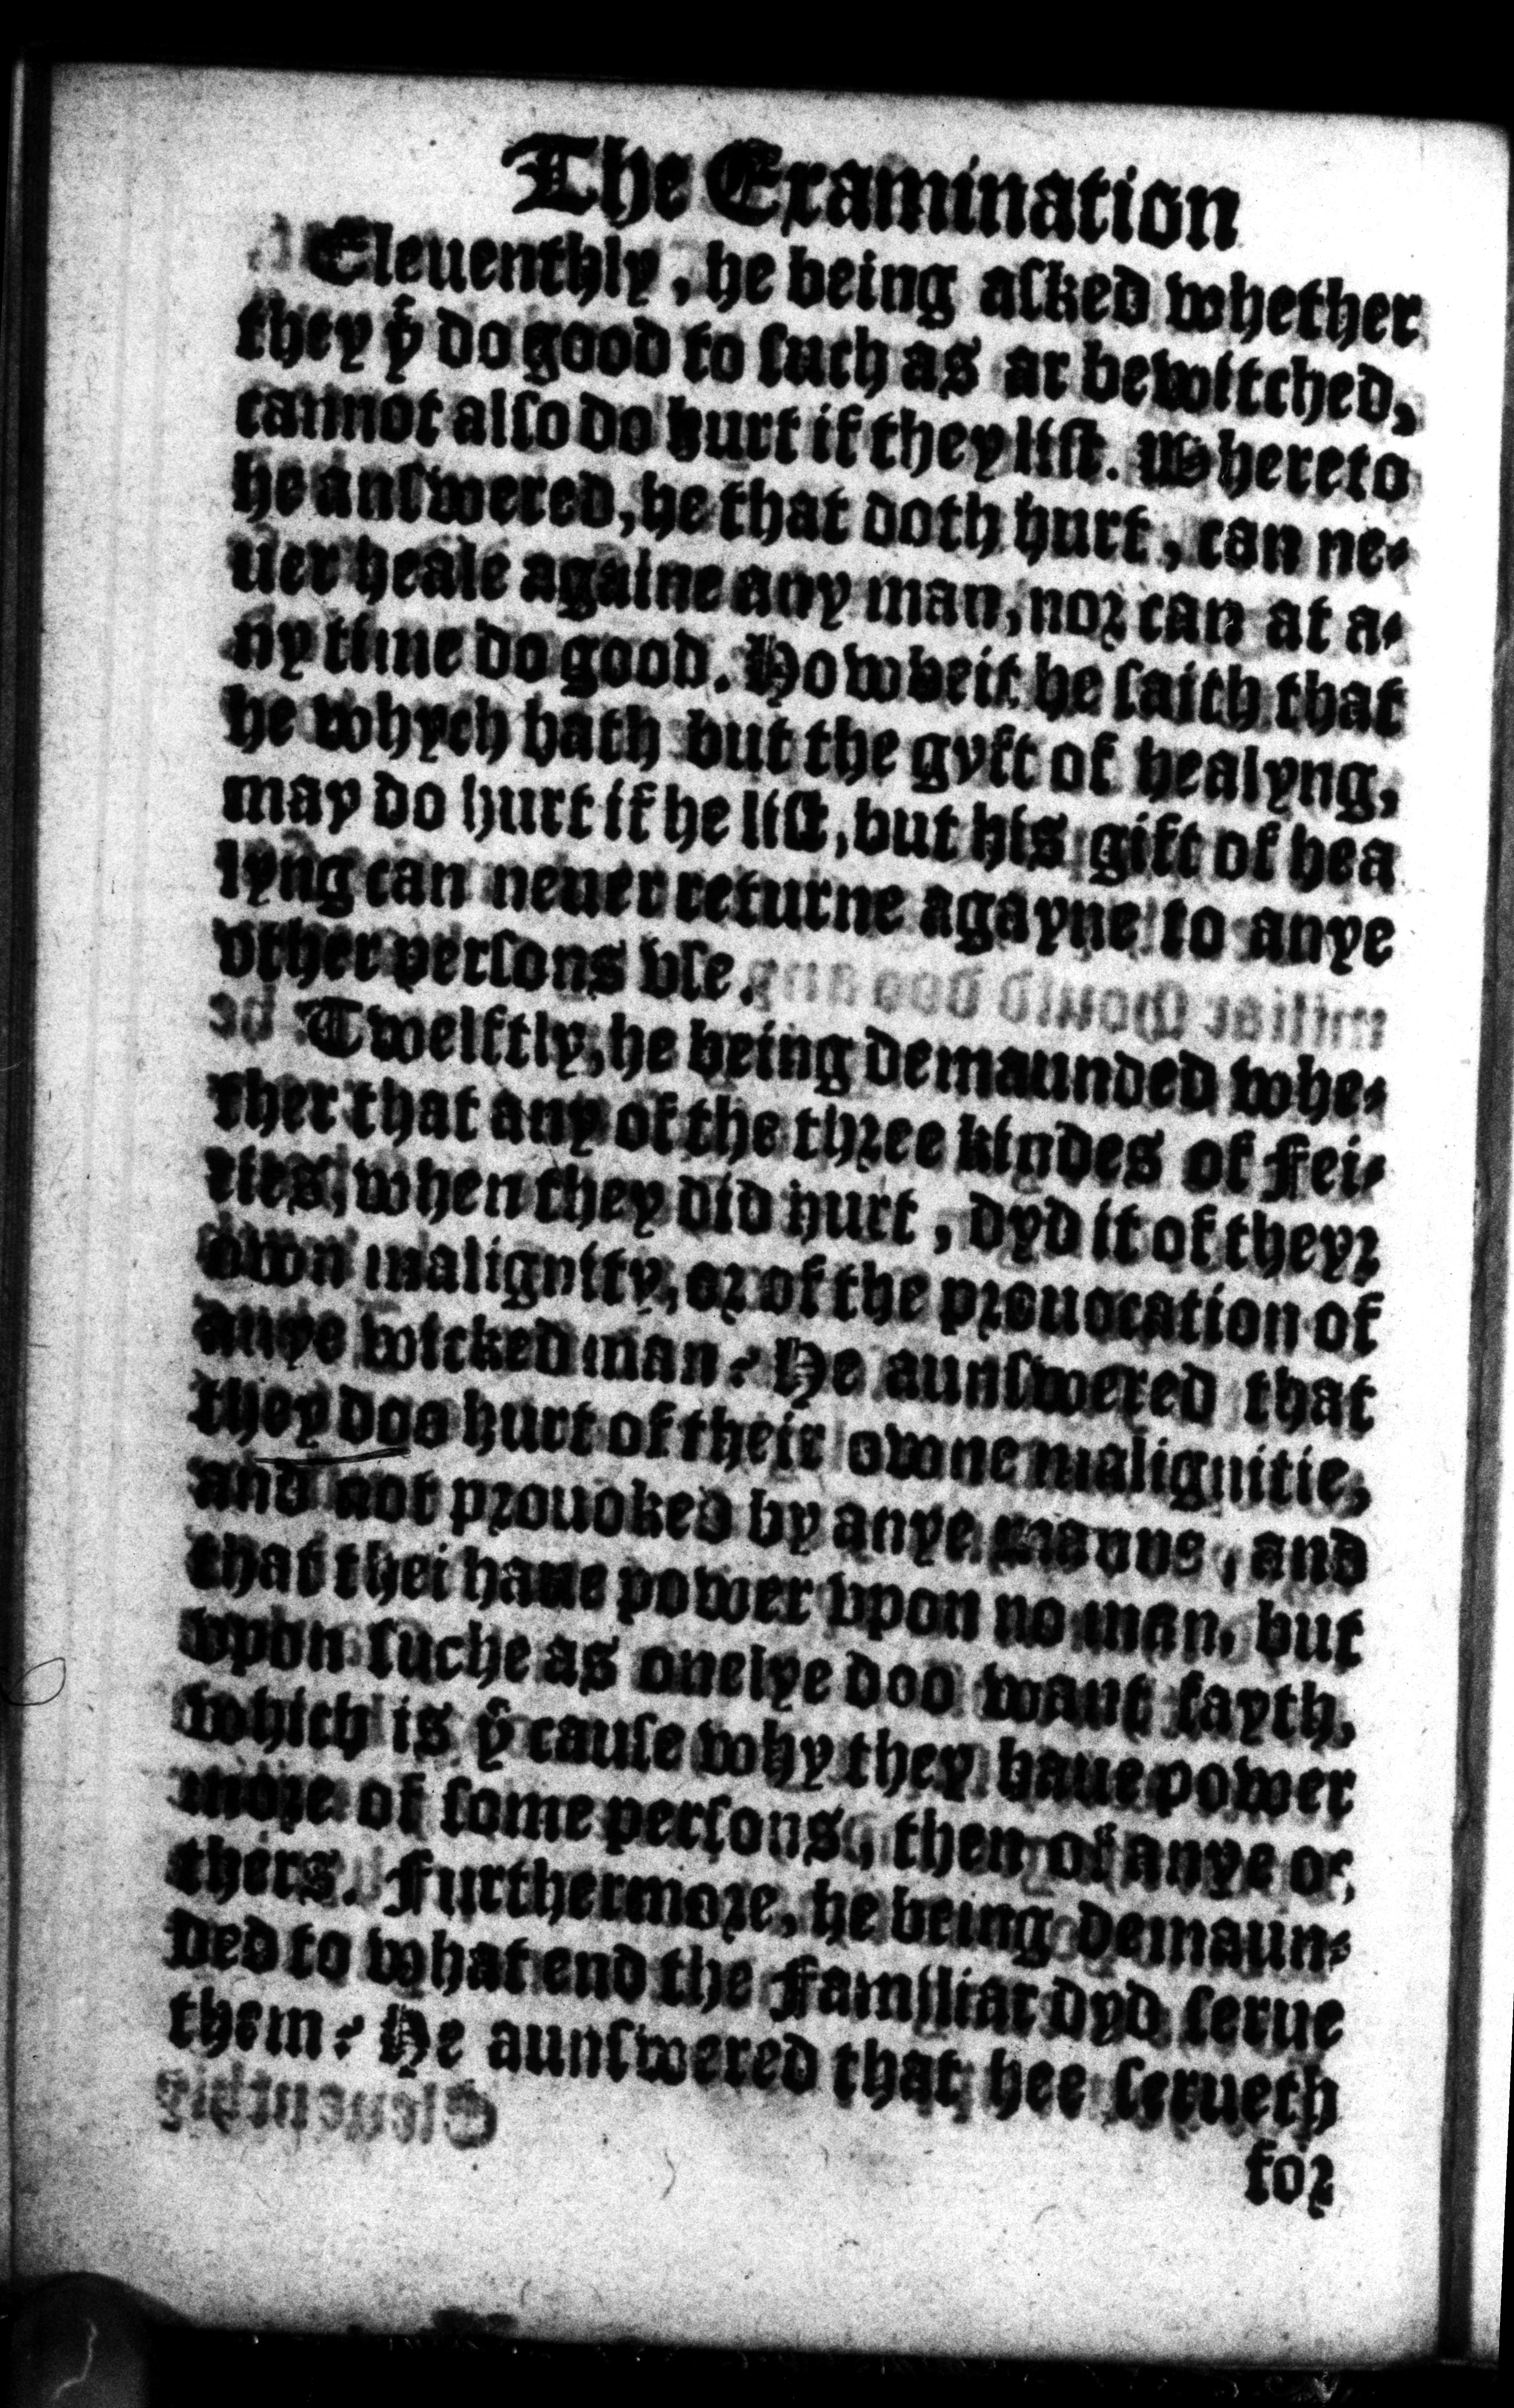 The Examination
Eleuenthly, he being aſked whether
they yͭ do good to ſuch as ar bewitched,
cannot alſo do hurt if they liſt. Whereto
he anſwered, he that doth hurt, can ne-
uer heale againe any man, nor can at a-
ny time do good. Howbeit he ſaith that
he whych hath but the gyft of healyng,
may do hurt if he liſt, but his gift of hea
lyng can neuer returne agayne to anye
other perſons vſe.
Twelftly, he being demaunded whe-
ther that any of the three kindes of Fei-
ries, when they did hurt, dyd it of theyr
own malignity, or of the prouocation of
anye wicked man? He aunſwered that
they doo hurt of their owne malignitie,
and not prouoked by anye manne, and
that thei haue power vpon no man, but
vpon ſuche as onelye doo want fayth,
which is yͤ cauſe why they haue power
more of ſome perſons, then of anye o-
thers. Furthermore, he being demaun-
ded to what end the Familiar dyd ſerue
them? He aunſwered that hee ſerueth
for